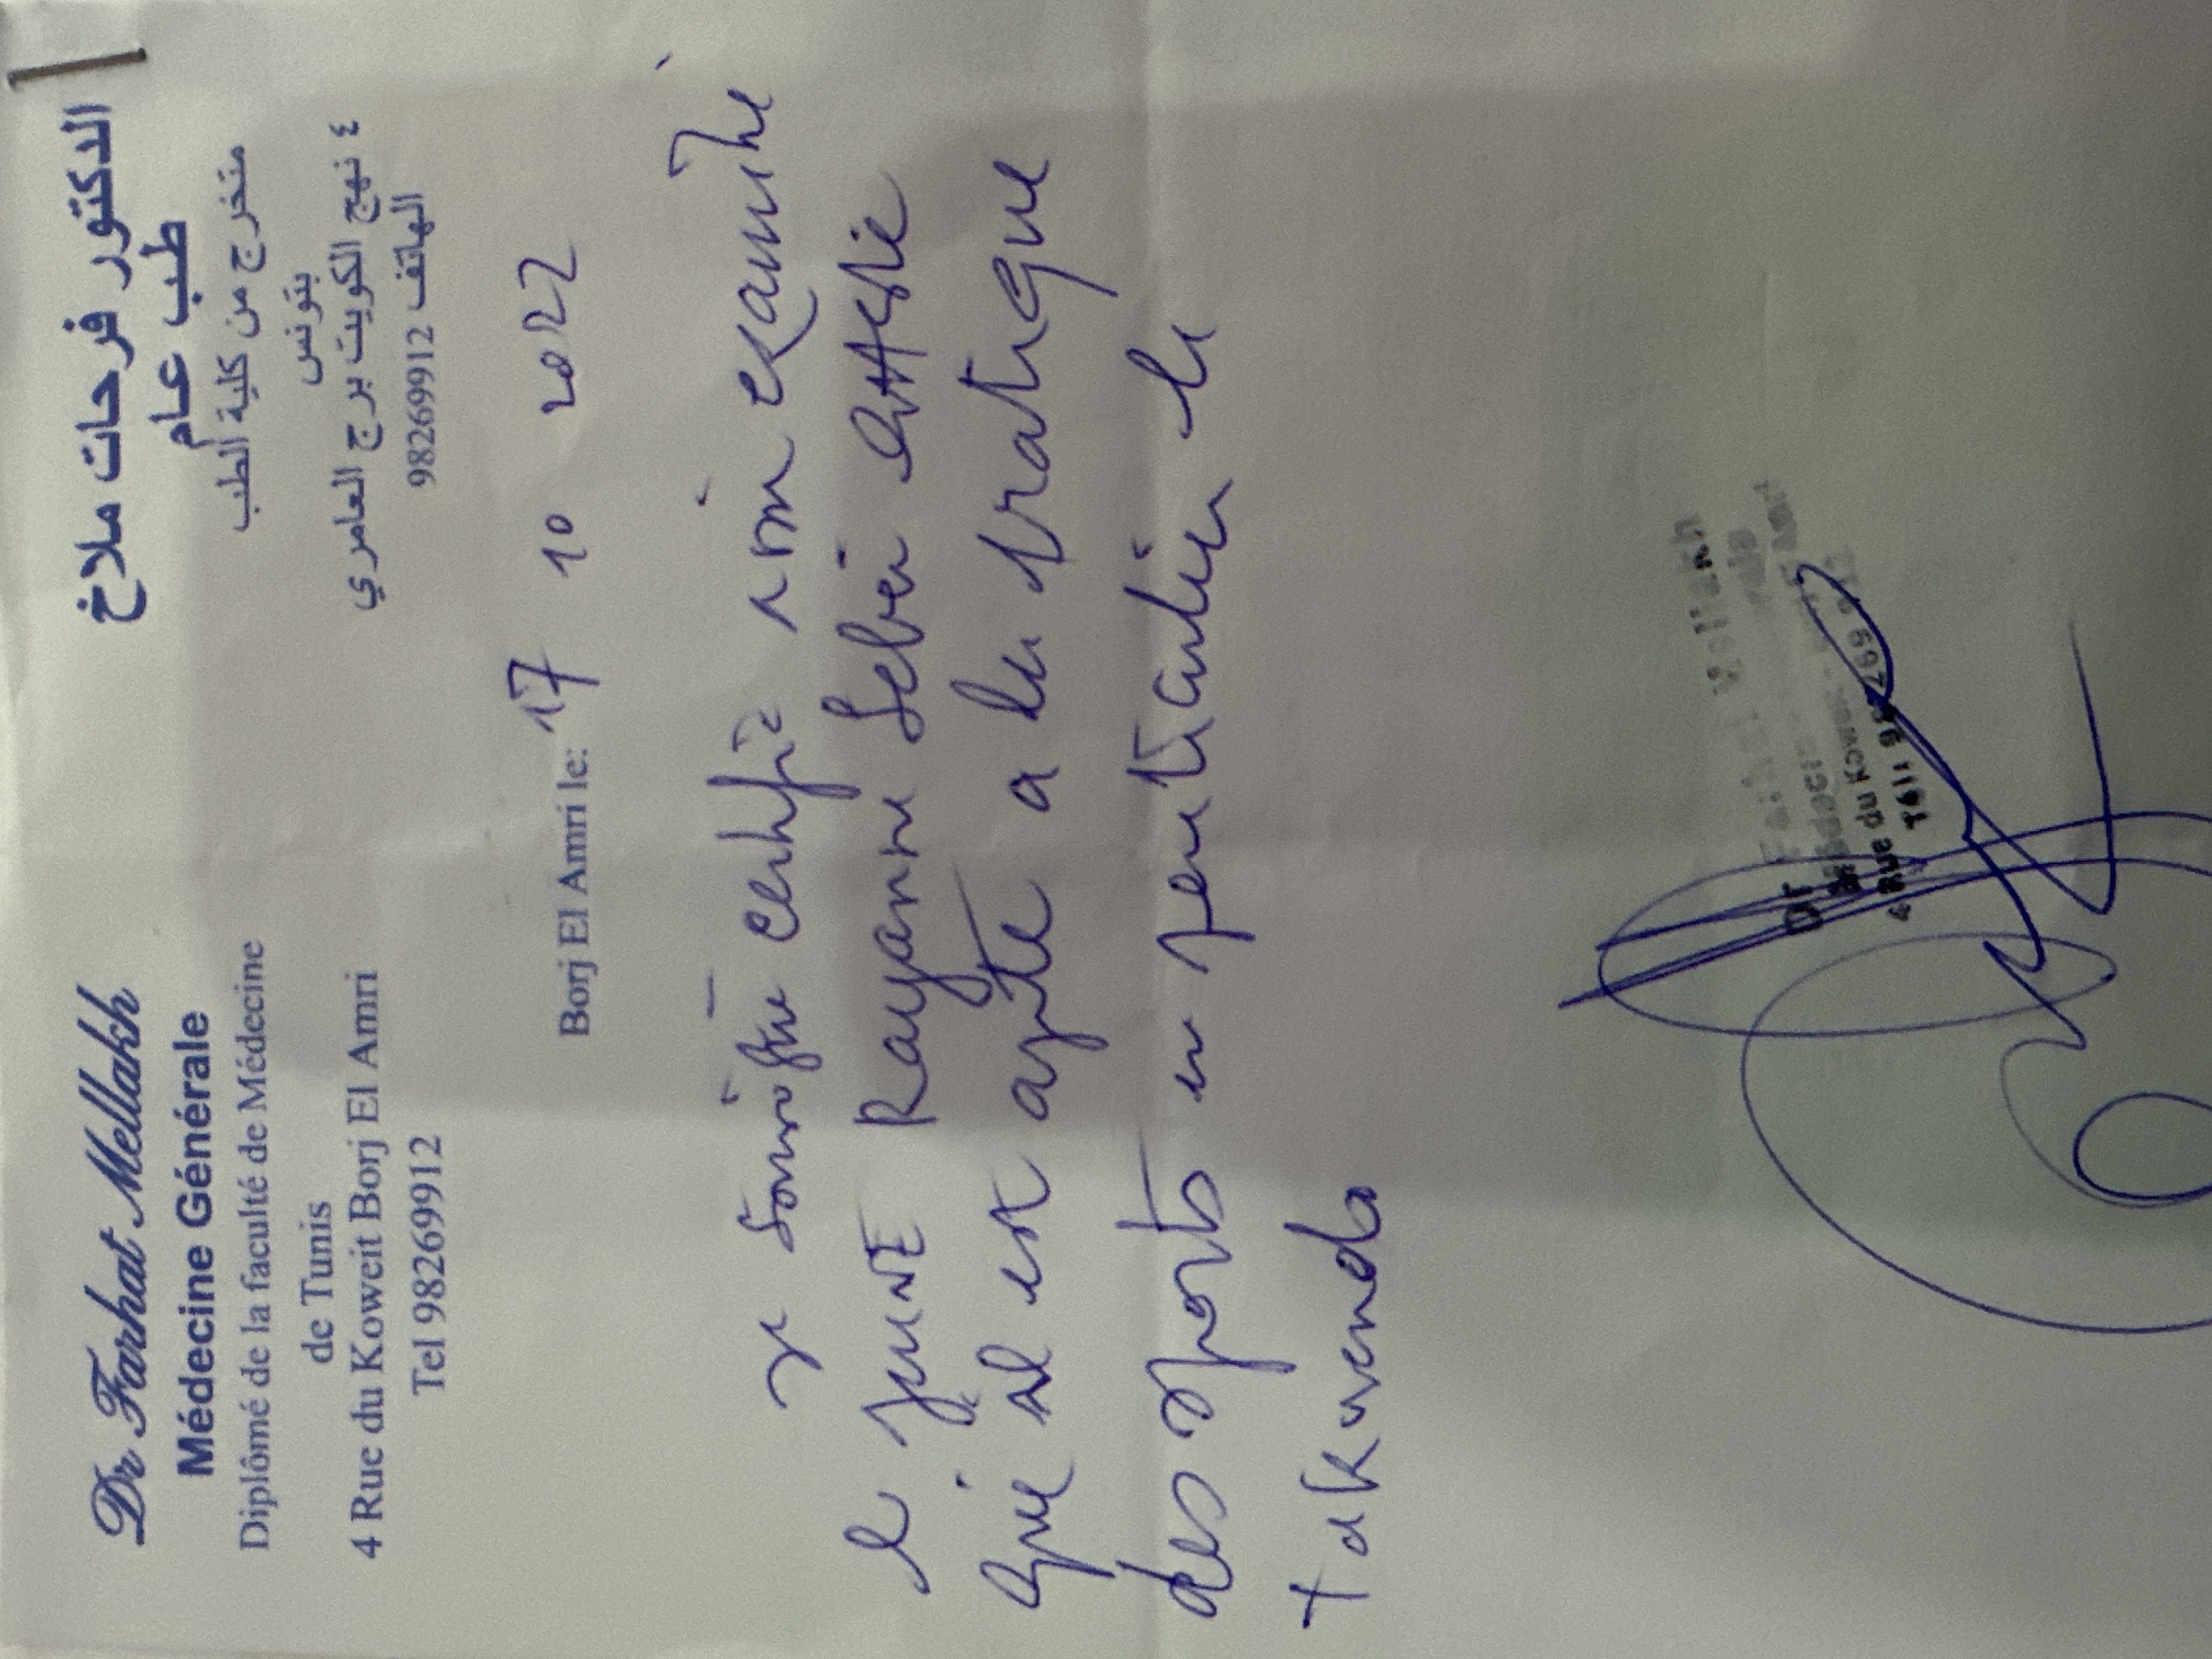 Dr Farhat Mellakh
Médecine Générale
Diplômé de la faculté de Médecine
de Tunis
4 Rue du Koweit Borj El Amri
Tel 98269912
الدكتور فرحات ملاخ
طب عام
متخرج من كلية الطب
بتونس
٤ نهج الكويت برج العامري
الهاتف 98269912
Borj El Amri le: 17 10 2022
je soussigné certifie avoir examiné
le jeune Rayanne Sebei
que il est apte a la pratique
des sports en particulier le
takwendo
Dr
4 Rue du Kowe
Tél: 98 269 912